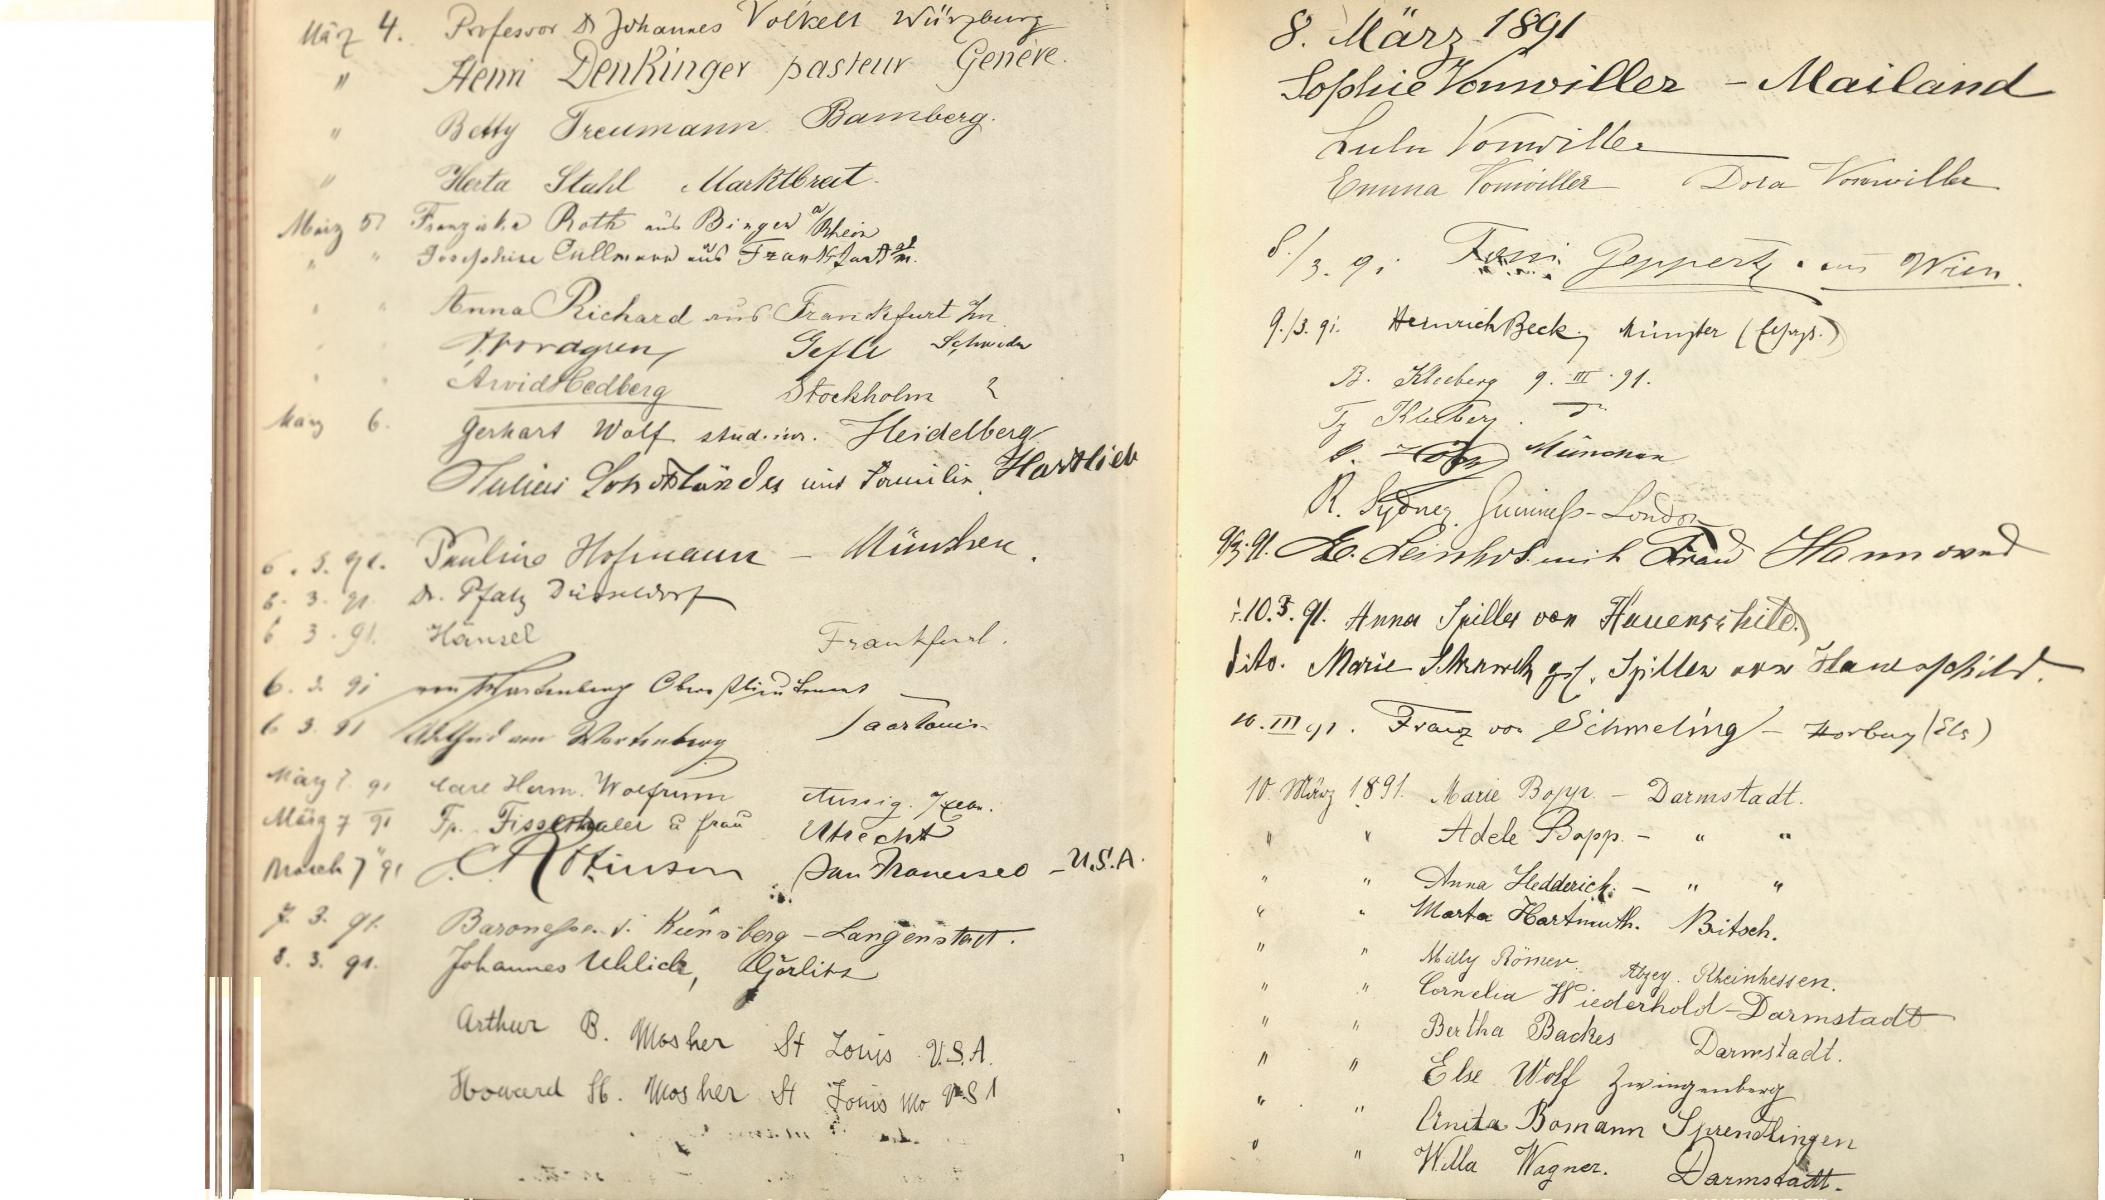 März 4. Professor Dr Johannes Volkelt Würzburg
" Henri Denkinger pasteur Genève.
" Betty Treumann Bamberg.
" Herta Stahl Marktbreit.
März 5 Franziska Roth aus Bingen a/Rhein
" " Josephine Cullmann aus Frankfurt a/M.
" " Anna Richard aus Frankfurt
" " Gefle Schweden
" " Arvid Hedberg Stockholm
März 6. Gerhart Wolf stud. iur. Heidelberg
Julius mit Familie,
6. 3. 91. Pauline Hofmann – München.
6. 3. 91. Dr. Pfalz Düsseldorf
6 3. 91. Hänsel Frankfurt.
6. 3. 91 von Wartenberg Oberstlieutenant
6 3. 91 von Wartenberg Saarlouis
März 7. 91 Carl Herm. Wolfrum Aussig.
März 7 91 Frau Utrecht
March 7" 91 Robinson San Francisco – U.S.A.
7. 3. 91. Baronesse v. Künsberg – Langenstadt.
8. 3. 91. Johannes Uhlich, Görlitz
Arthur B. Mosher St Louis U.S.A.
Howard H. Mosher St Louis Mo U.S.A
8. März 1891
Sophie Vonwiller – Mailand
Lulu Vonwiller
Emma Vonwiller Dora Vonwiller
8./3. 91 Geppert aus Wien.
9./3. 91. Heinrich Beck, Münster
B. Kleeberg 9. III. 91.
Kleeberg
München
R. Sydney Guinness – London
9/3. 91. mit Frau Hannover
10.3. 91. Anna Spiller von Hauenschild
dito. Marie geb. Spiller von Hauenschild.
10. III 91. Franz von Schmeling – Horburg (Els)
10. März 1891. Marie Bopp. – Darmstadt.
" " Adele Bopp – " "
" " Anna Hedderich. – " "
" " Marta Hartmuth. Nritsch.
" " Milly Römer. Alzey. Rheinhessen.
" " Cornelia Wiederhold – Darmstadt
" " Bertha Backes Darmstadt.
" " Else Wolf Zwingenberg
" " Anita Bomann Sprendlingen
" " Willa Wagner. Darmstadt.